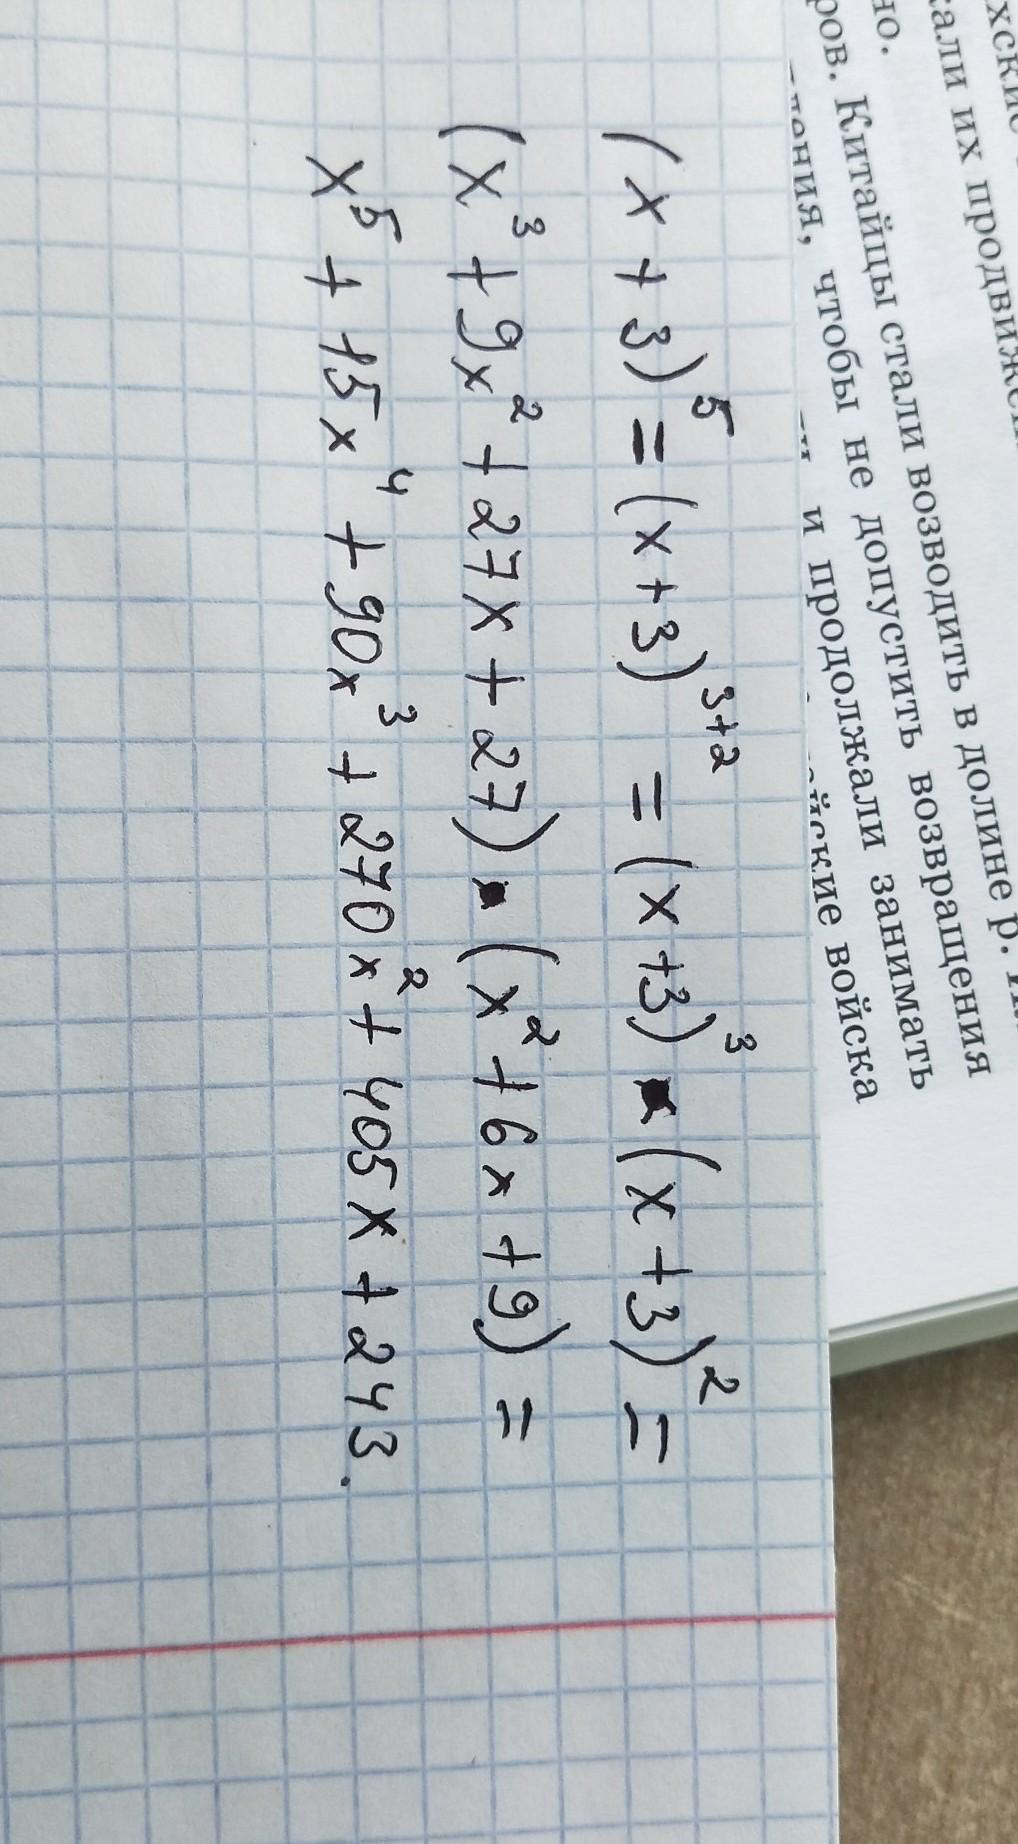 хские
кали их продвиже
но.
ров. Китайцы стали возводить в долине р.
чтобы не допустить возвращения
и продолжали занимать
войска
(x + 3)⁵ = (x + 3)³⁺² = (x + 3)³ · (x + 3)² =
(x³ + 9x² + 27x + 27) · (x² + 6x + 9) =
x⁵ + 15x⁴ + 90x³ + 270x² + 405x + 243.